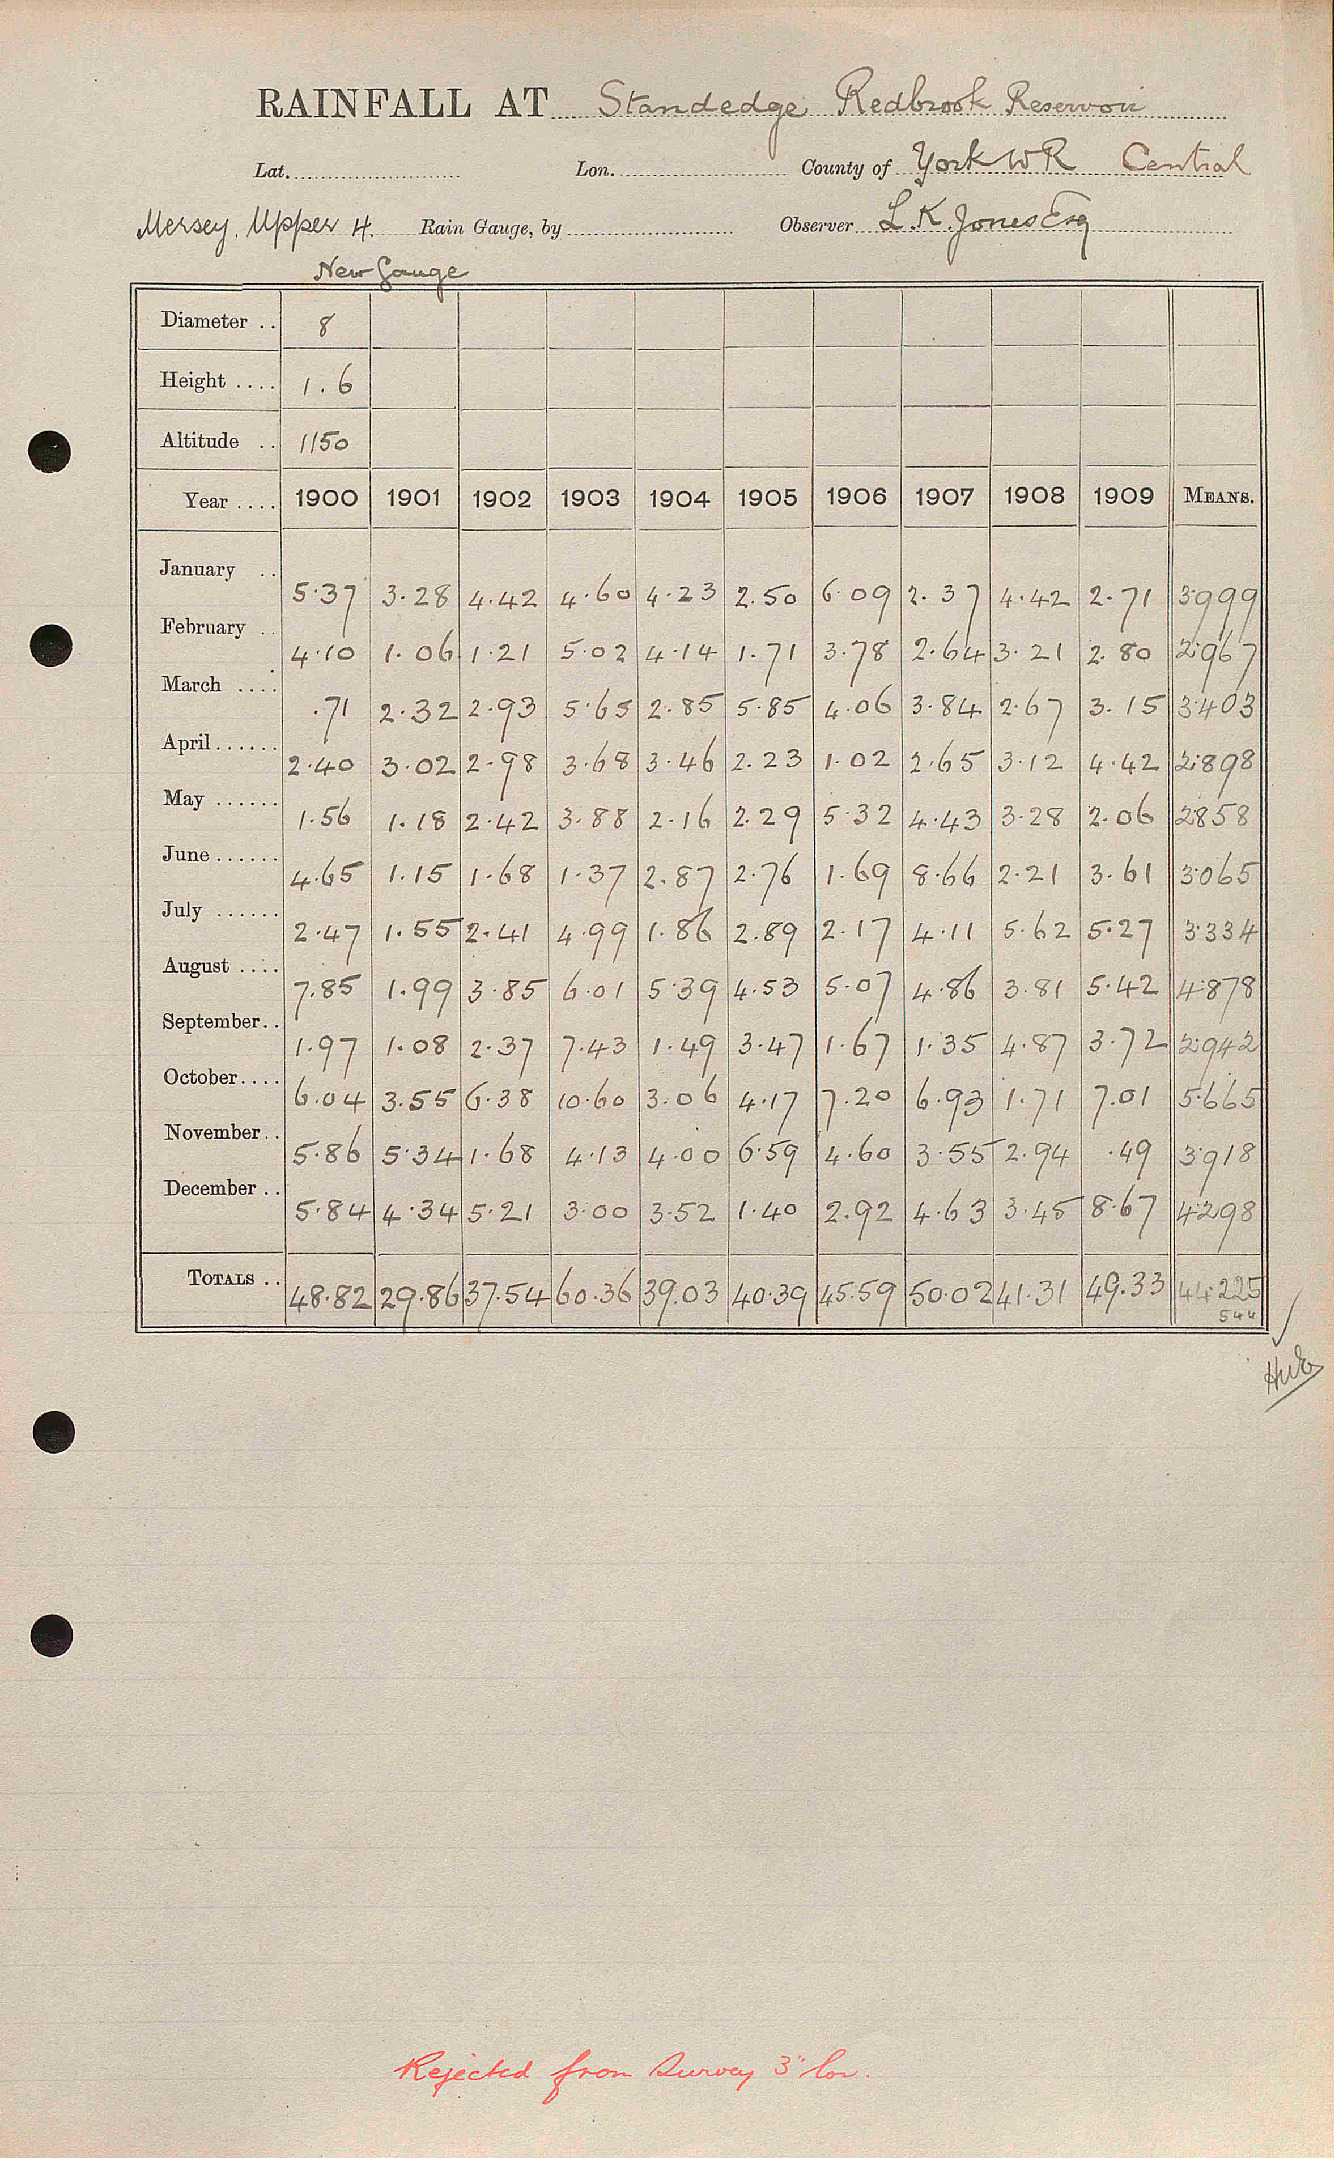 RAINFALL AT Standedge Redbrook Reservoir
Lat. Lon. County of York W R Central
Mersey. Upper H. Rain Gauge, by Observer L. K. Jones Esq
New Gauge
Diameter .. 8
Height .... 1.6
Altitude .. 1150
Year .... 1900 1901 1902 1903 1904 1905 1906 1907 1908 1909 MEANS.
January .. 5.37 3.28 4.42 4.60 4.23 2.50 6.09 2.37 4.42 2.71 3.999
February .. 4.10 1.06 1.21 5.02 4.14 1.71 3.78 2.64 3.21 2.80 2.967
March .... .71 2.32 2.93 5.65 2.85 5.85 4.06 3.84 2.67 3.15 3.403
April...... 2.40 3.02 2.98 3.68 3.46 2.23 1.02 2.65 3.12 4.42 2.898
May ...... 1.56 1.18 2.42 3.88 2.16 2.29 5.32 4.43 3.28 2.06 2858
June...... 4.65 1.15 1.68 1.37 2.87 2.76 1.69 8.66 2.21 3.61 3.065
July ...... 2.47 1.55 2.41 4.99 1.86 2.89 2.17 4.11 5.62 5.27 3.334
August .... 7.85 1.99 3.85 6.01 5.39 4.53 5.07 4.86 3.81 5.42 4.878
September.. 1.97 1.08 2.37 7.43 1.49 3.47 1.67 1.35 4.87 3.72 2.942
October.... 6.04 3.55 6.38 10.60 3.06 4.17 7.20 6.93 1.71 7.01 5.665
November.. 5.86 5.34 1.68 4.13 4.00 6.59 4.60 3.55 2.94 .49 3.918
December .. 5.84 4.34 5.21 3.00 3.52 1.40 2.92 4.63 3.45 8.67 4.298
TOTALS .. 48.82 29.86 37.54 60.36 39.03 40.39 45.59 50.02 41.31 49.33 44.225
Rejected from Survey 3" low.